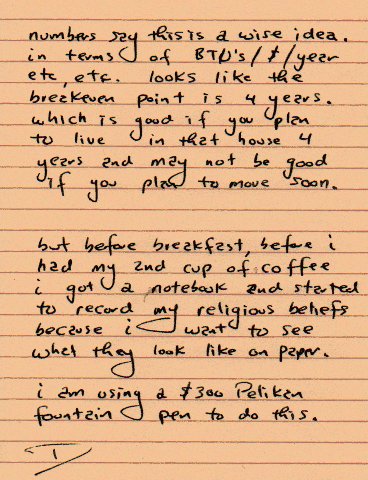 numbers say this is a wise idea.
in terms of BTU's/$/year
etc, etc. looks like the
breakeven point is 4 years.
which is good if you plan
to live in that house 4
years and may not be good
if you plan to move soon.
but before breakfast, before i
had my 2nd cup of coffee
i got a notebook and started
to record my religious beliefs
because i want to see
what they look like on paper.
i am using a $300 Pelikan
fountain pen to do this.